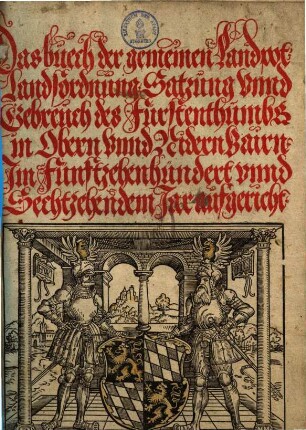 Das buech der gemeinen Landpot.
Landsordnung. Satzung vnnd
Gebreuch des Fürstenthumbs
in Obern vnnd Nidern Bairn.
Im Funftzehenhundert vnnd
Sechtzehendem Jar aufgericht.